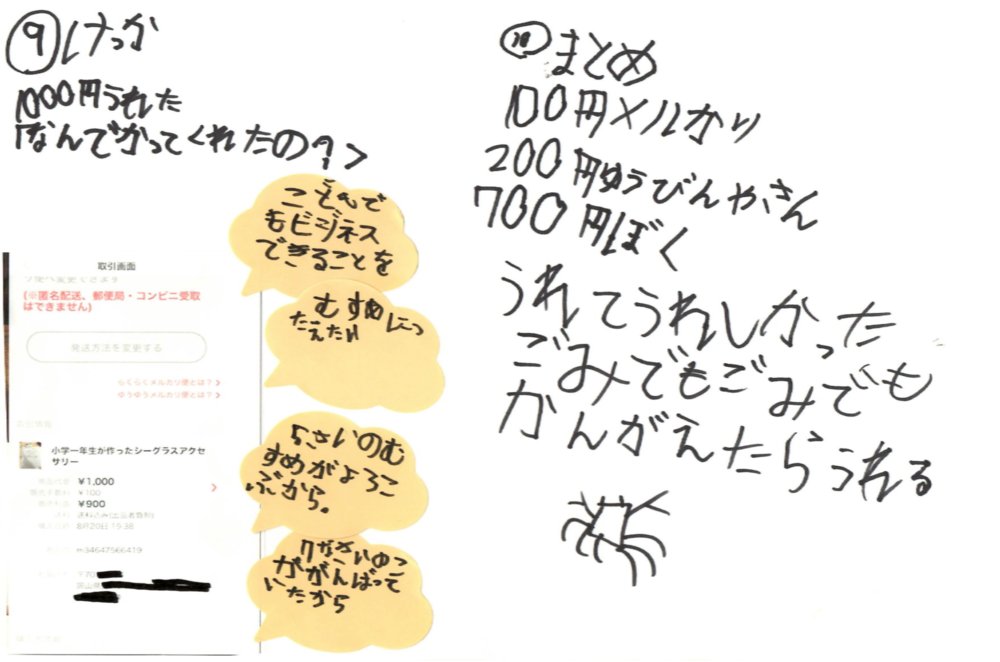 ⑨けっか
1000円うれた
なんでかってくれたの?>
こどもで
もビジネス
できることを
むすめにつ
たえたい
5さいのむ
すめがよろこ
ぶから。
7さいゆこ
ががんばって
いたから
取引画面
(※匿名配送、郵便局・コンビニ受取
はできません)
発送方法を変更する
らくらくメルカリ便とは?
ゆうゆうメルカリ便とは?
取引情報
小学一年生が作ったシーグラスアクセ
サリー
商品代金 ¥1,000
販売手数料 ¥100
販売利益 ¥900
送料 送料込み(出品者負担)
購入日時 8月20日 19:38
商品ID m34647566419
⑩まとめ
100円メルカリ
200円ゆうびんやさん
700円ぼく
うれてうれしかった
ごみでもごみでも
かんがえたらうれる